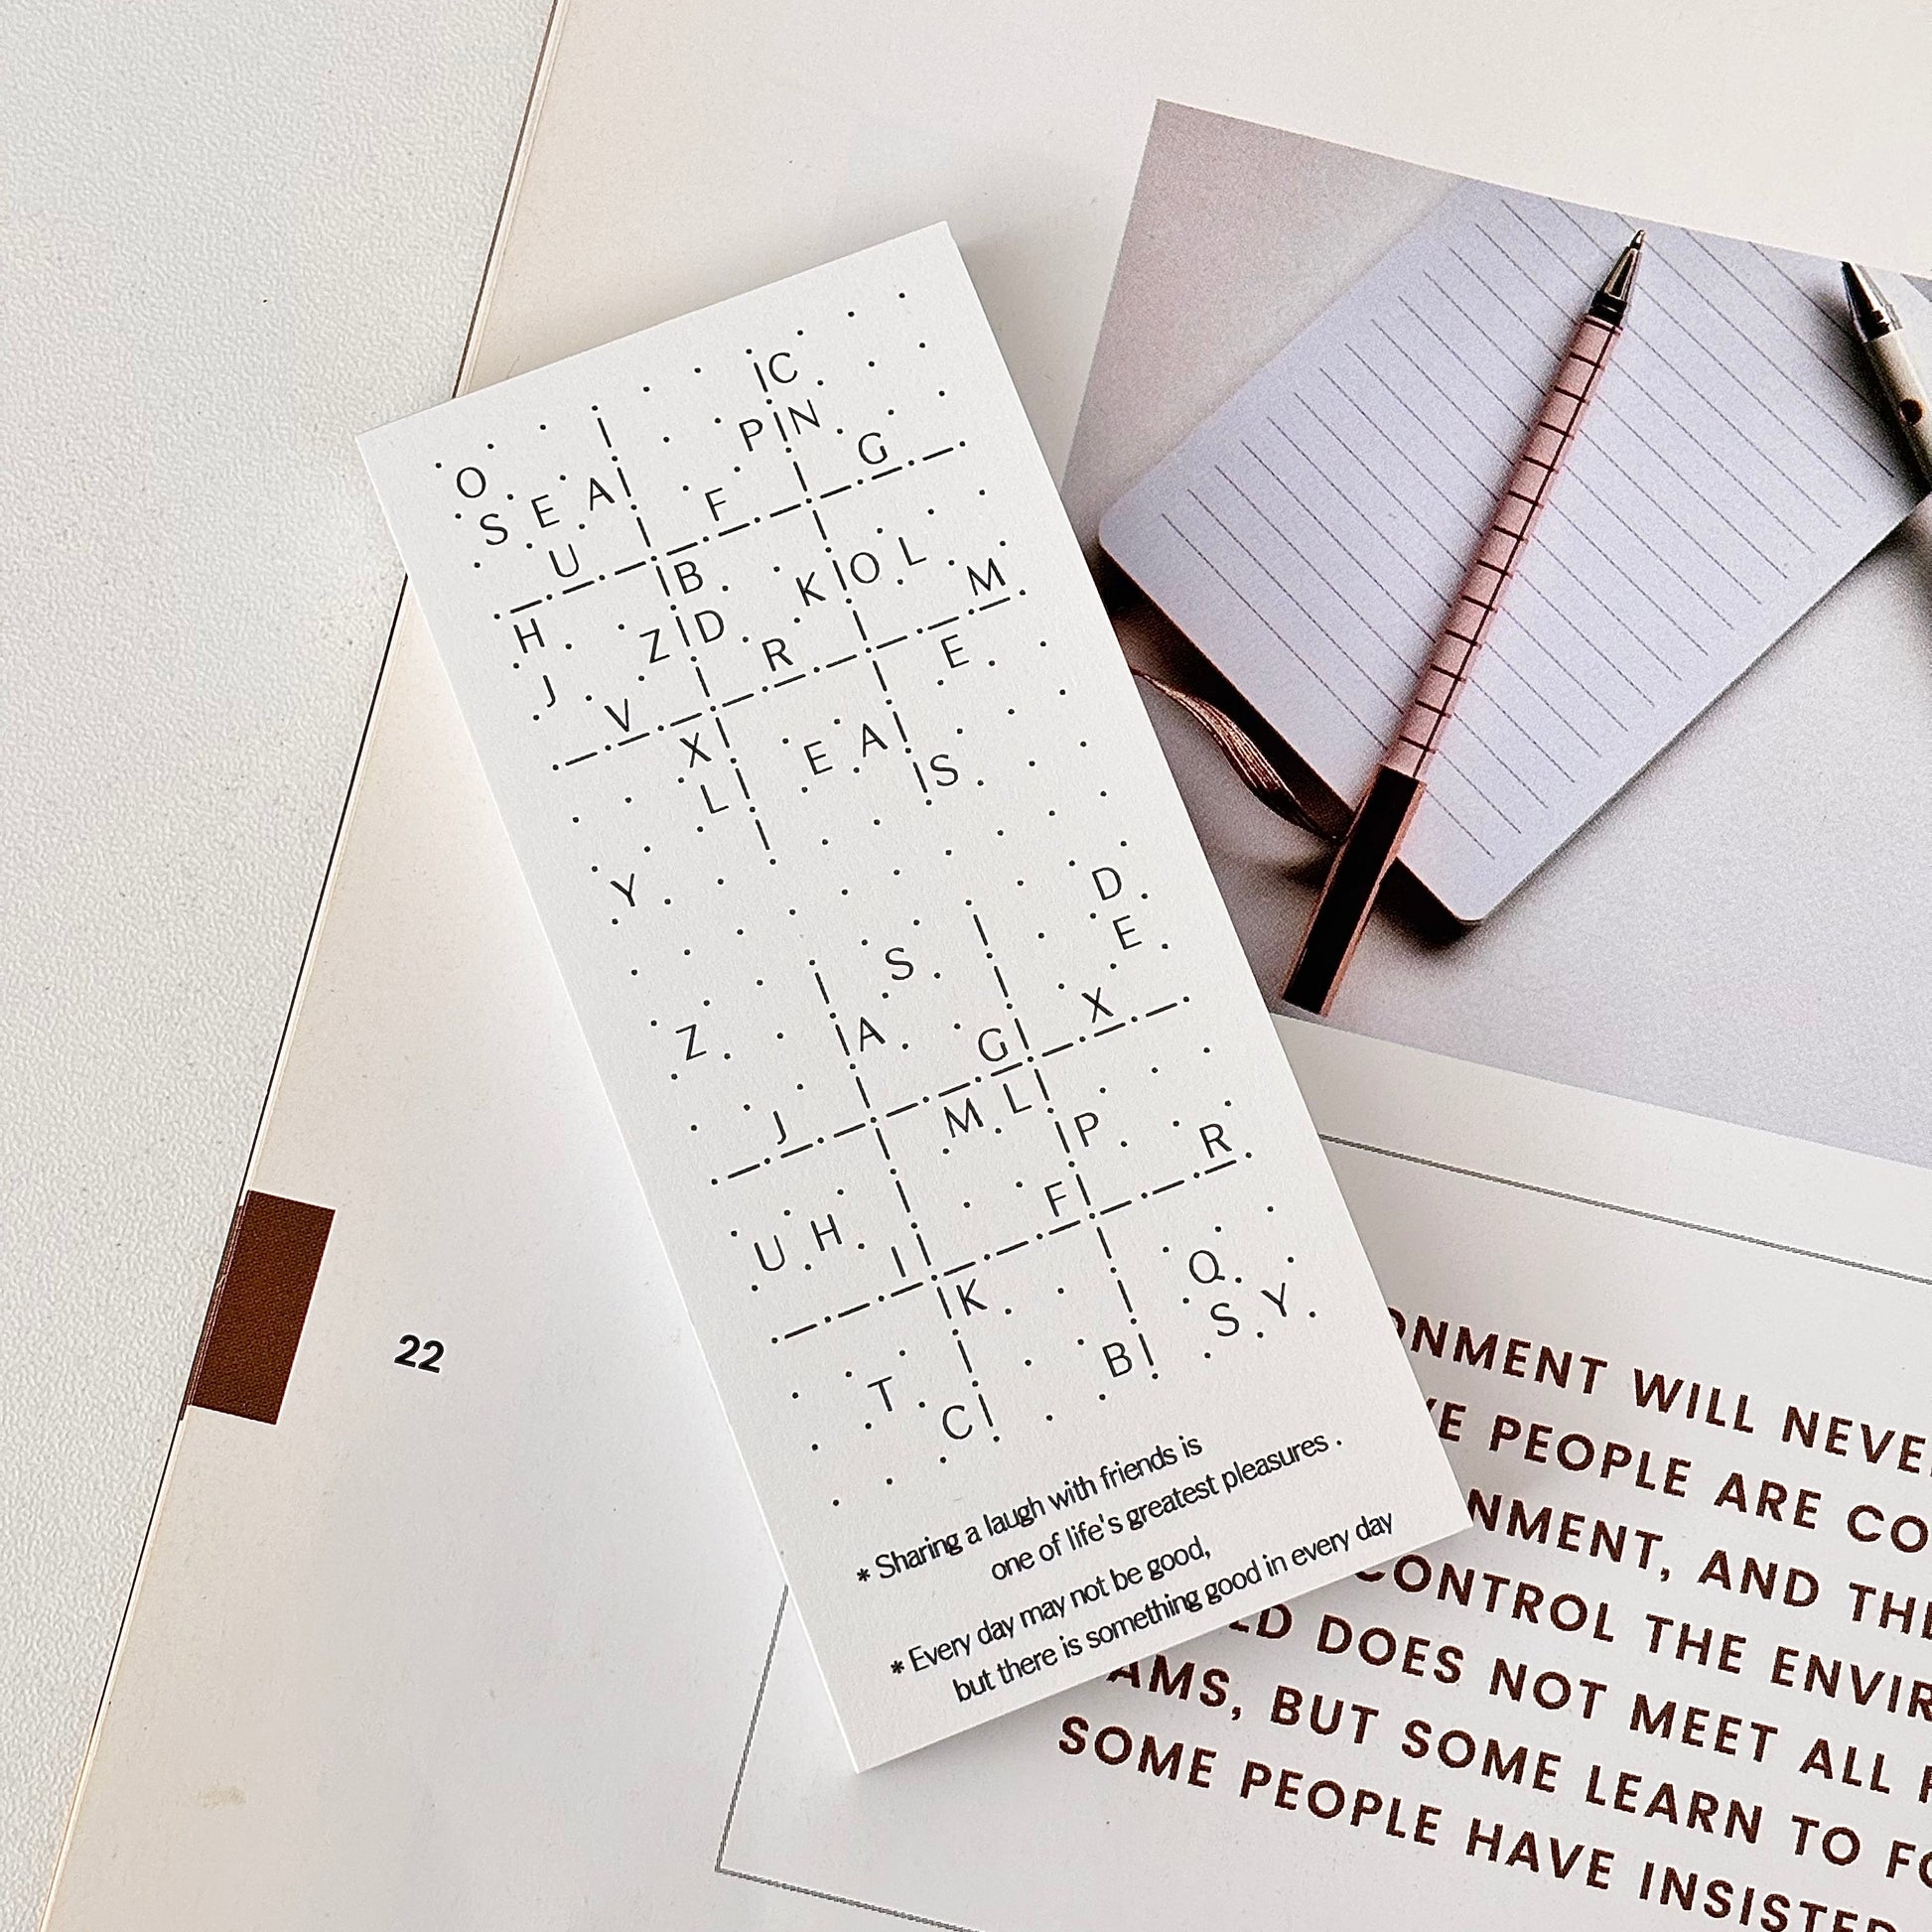 O C
S E A P N
U F G
H B
J Z D K O L
V R M
X E
L E A
S
Y
Z S D
A E
J G X
M L
U H P
I F R
K
T Q
C B S Y
* Sharing a laugh with friends is
one of life's greatest pleasures .
* Every day may not be good,
but there is something good in every day
22
WILL NEVE
PEOPLE ARE CO
AND THE
CONTROL THE ENVIR
DOES NOT MEET ALL
BUT SOME LEARN TO FO
SOME PEOPLE HAVE INSISTED